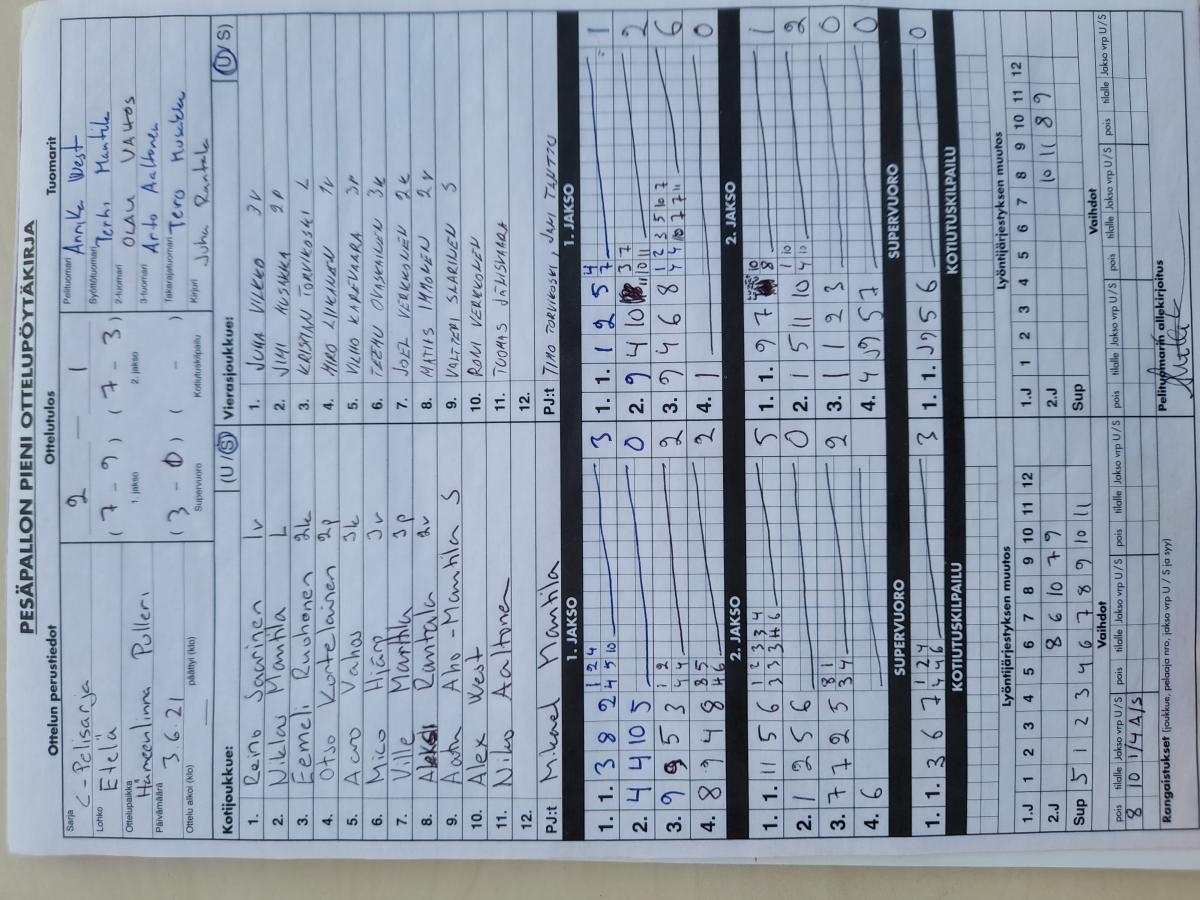 PESÄPALLON PIENI OTTELUPÖYTÄKIRJA
Ottelun perustiedot Ottelutulos Tuomarit
Sarja C-Pelisarja
Lohko Etelä
Ottelupaikka Hämeenlinna Pulleri
Päivämäärä 3.6.21
Ottelu alkoi (klo) päättyi (klo)
2 — 1
(7 - 9) (7 - 3)
1. jakso 2. jakso
(3 - 0) ( - )
Supervuoro Kotiutuskilpailu
Pelituomari Annika West
Syöttötuomari Terhi Mantila
2-tuomari OLAVI VAHOS
3-tuomari Arto Aaltonen
Takarajatuomari Tero
Kirjuri Juha Rantala
Kotijoukkue: (U/S)
1. Reino Saarinen 1v
2. Niklas Mantila L
3. Eemeli Ruohonen 2k
4. Otso Kotelainen 2p
5. Aaro Vahos 3k
6. Mico Hjärp 3v
7. Ville Mantila 3p
8. Rantala 2v
9. Aatu Aho-Mantila S
10. Alex West
11. Niko Aaltonen
12.
PJ:t Mikael Mantila
Vierasjoukkue: (U/S)
1. JUHA VILKKO 3v
2. JIMI HUSKKA 2p
3. KRISTIAN TORVIKOSKI L
4. MIRO LIKANEN 1v
5. VILHO KAREVAARA 3p
6. TEEMU OVASKAINEN 3k
7. JOEL VERKKONEN 2k
8. MATIAS IMMONEN 2v
9. VALTTERI SKARINEN S
10. RONI VERKKONEN
11. TUOMAS JÄLISKAARA
12.
PJ:t TIMO TORVIKOSKI, JANI TANTTU
1. JAKSO
1. 1. 3 8 2 3
2. 4 4 10 5 0
3. 9 9 5 3 2
4. 8 9 4 8 2
1. JAKSO
1. 1. 1 2 5 7 1
2. 9 4 10 2
3. 9 4 6 8 6
4. 1 0
2. JAKSO
1. 1. 11 5 6 5
2. 1 2 5 6 0
3. 7 7 2 5 2
4. 6
2. JAKSO
1. 1. 9 7 1
2. 1 5 11 10 2
3. 1 1 2 3 0
4. 4 9 5 7 0
SUPERVUORO
1. 1. 3 6 7 3
SUPERVUORO
1. 1. 9 5 6 0
KOTIUTUSKILPAILU
KOTIUTUSKILPAILU
Lyöntijärjestyksen muutos
1.J 1 2 3 4 5 6 7 8 9 10 11 12
2.J 8 6 10 7 9
Sup 5 1 2 3 4 6 7 8 9 10 11
Lyöntijärjestyksen muutos
1.J 1 2 3 4 5 6 7 8 9 10 11 12
2.J 10 11 8 9
Sup
Vaihdot
pois tilalle Jakso vrp U/S pois tilalle Jakso vrp U/S pois tilalle Jakso vrp U/S
8 10 1/4A/S
Vaihdot
pois tilalle Jakso vrp U/S pois tilalle Jakso vrp U/S pois tilalle Jakso vrp U/S
Rangaistukset (joukkue, pelaaja nro, jakso vrp U/S ja syy)
Pelituomarin allekirjoitus